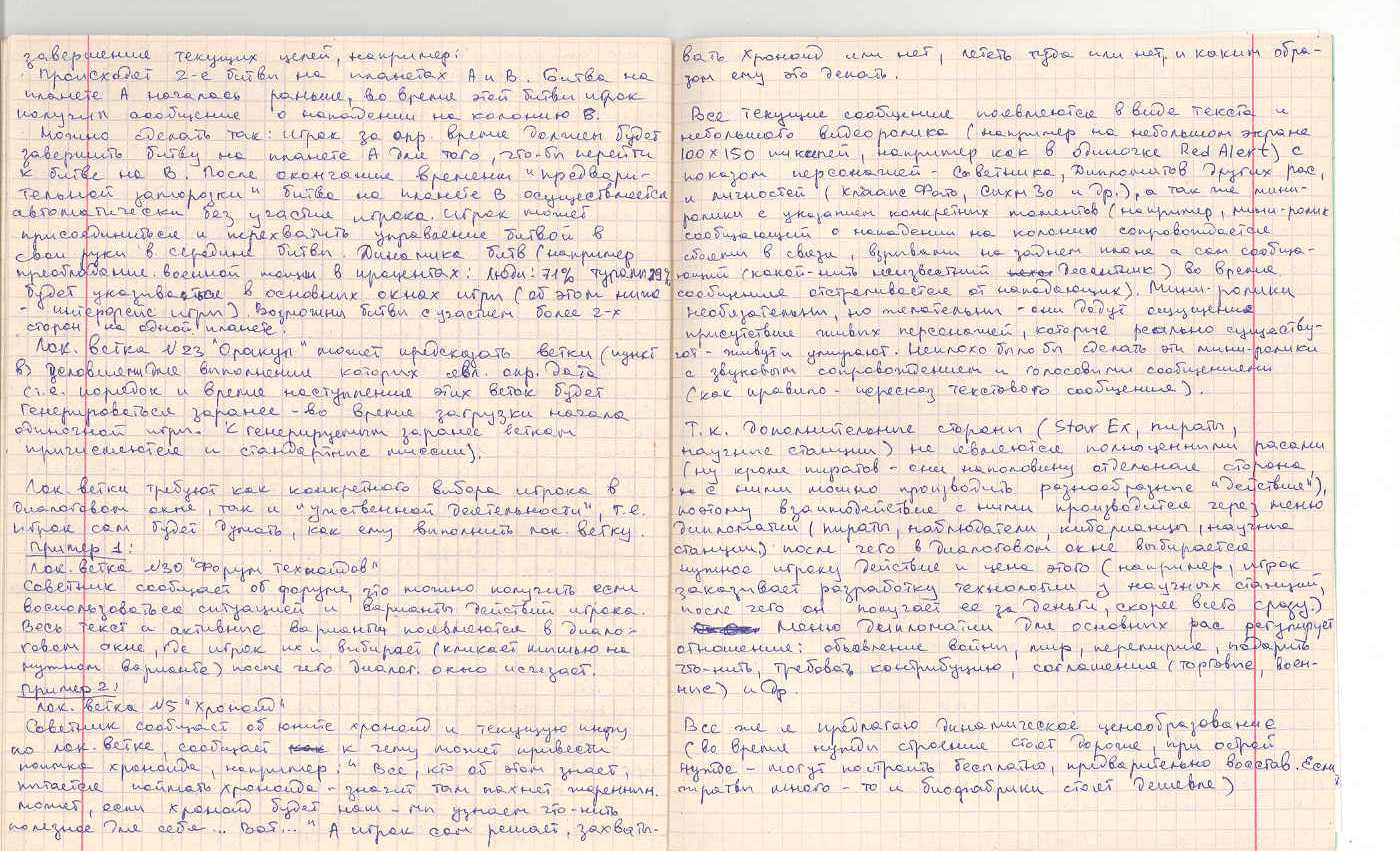 завершение текущих целей, например:
Происходят 2-е битвы на планетах А и В. Битва на
планете А началась раньше, во время этой битвы игрок
получил сообщение о нападении на колонию В.
Можно сделать так: игрок за опр. время должен будет
завершить битву на планете А для того, что-бы перейти
к битве на В. После окончание времени "предвари-
тельной заморозки" битва на планете В осуществляется
автоматически без участия игрока. Игрок может
присоединиться и перехватить управление битвой в
свои руки в середине битвы. Динамика битв (например
преобладание военной мощи в процентах: люди: 71% 29%
будет указываться в основных окнах игры (об этом ниже
- интерфейс игры). Возможны битвы с участием более 2-х
сторон на одной планете.
Лок. ветка №23 "Оракул" может предсказать ветки (пункт
в) условием для выполнения которых явл. опр. дата
(т.е. порядок и время наступления этих веток будет
генерироваться заранее - во время загрузки начала
одиночной игры. К генерируемым заранее веткам
причисляются и стандартные миссии).
Лок. ветки требуют как конкретного выбора игрока в
диалоговом окне, так и "умственной деятельности", т.е.
игрок сам будет думать, как ему выполнить лок. ветку.
Пример 1:
Лок. ветка №30 "Форум техноидов"
Советник сообщает об форуме, что можно получить если
воспользоваться ситуацией и варианты действий игрока.
Весь текст и активные варианты появляются в диало-
говом окне, где игрок их и выбирает (кликает мышью на
нужном варианте) после чего диалог. окно исчезает.
Пример 2:
Лок. ветка №5 "Хроноид"
Советник сообщает об юните хроноид и текущую инфу
по лок. ветке, сообщает к чему может привести
поимка хроноида, например: "Все, кто об этом знает,
пытаются поймать хроноида - значит там пахнет жаренным.
может, если хроноид будет наш - мы узнаем что-нить
полезное для себя... Вот..." А игрок сам решает, захваты-
вать Хроноид или нет, лететь туда или нет, и каким обра-
зом ему это делать.
Все текущие сообщение появляются в виде текста и
небольшого видеоролика (например на небольшом экране
100×150 пикселей, например как в одиночке Red Alert) с
показом персонажей - советника, дипломатов других рас,
и личностей (Клаанс Фато, Сихн Зо и др.), а так же мини-
ролики с указанием конкретных моментов (например, мини-ролик
сообщающий о нападении на колонию сопровождается
сбоями в связи, взрывами на заднем плане а сам сообща-
ющий (какой-нить неизвестный десантник) во время
сообщение отстреливается от нападающих). Мини-ролики
необязательны, но желательны - они дадут ощущение
присутствие живых персонажей, которые реально существу-
ют - живут и умирают. Неплохо было бы сделать эти мини-ролики
с звуковым сопровождением и голосовыми сообщениями
(как правило - пересказ текстового сообщение).
Т.к. дополнительные стороны (Star Ex, пираты,
научные станции) не являются полноценными расами
(ну кроме пиратов - они наполовину отдельная сторона,
с ними можно производить разнообразные "действие"),
поэтому взаимодействие с ними производится через меню
дипломатии (пираты, наблюдатели, киберианцы, научные
станции) после чего в диалоговом окне выбирается
нужное игроку действие и цена этого (например, игрок
заказывает разработку технологии у научных станций,
после чего он получает ее за деньги, скорее всего сразу.)
Меню дипломатии для основных рас регулирует
отношение: объявление войны, мир, перемирие, подарить
что-нить, требовать контрибуцию, соглашение (торговые, воен-
ные) и др.
Все же я предлагаю динамическое ценообразование
(во время нужды строение стоят дороже, при острой
нужде - могут построить бесплатно, предварительно восстав. Если
жратвы много - то и биофабрики стоят дешевле)